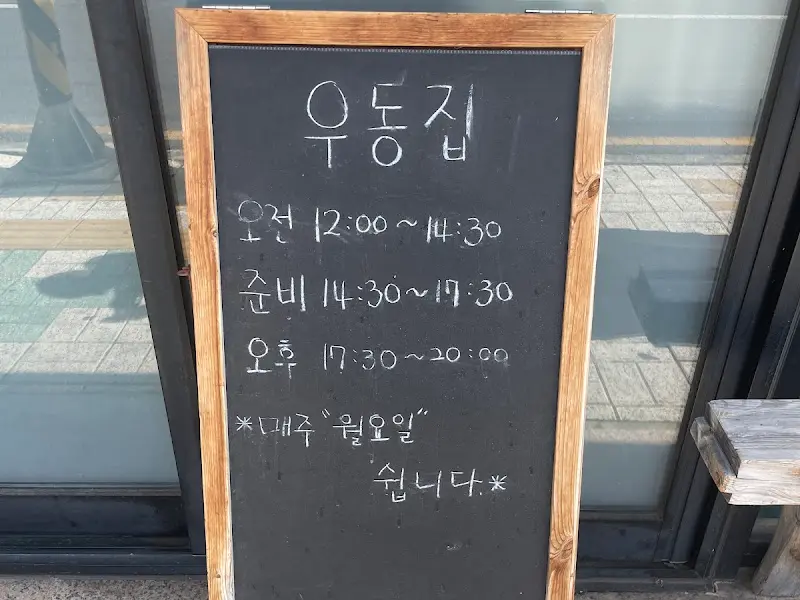 우동집
오전 12:00~14:30
준비 14:30~17:30
오후 17:30~20:00
*매주 "월요일"
쉽니다.*